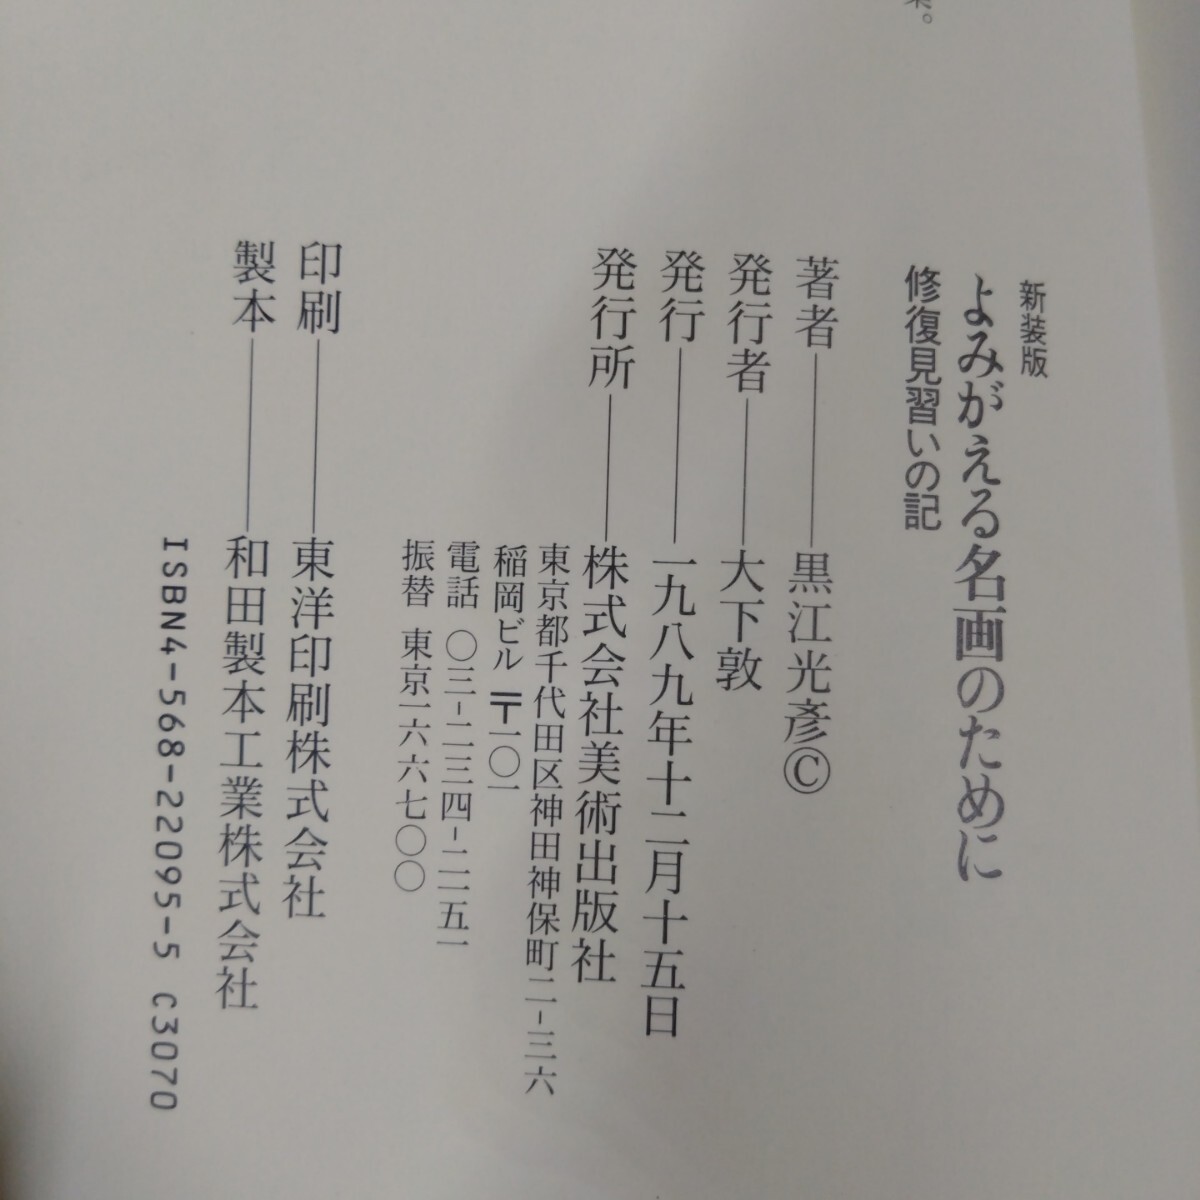 新装版
よみがえる名画のために
修復見習いの記
著者――黒江光彦©
発行者――大下敦
発行――一九八九年十二月十五日
発行所――株式会社美術出版社
東京都千代田区神田神保町二-三六
稲岡ビル 〒一〇一
電話 〇三-二三四-二一五一
振替 東京一六六七〇〇
印刷――東洋印刷株式会社
製本――和田製本工業株式会社
ISBN4-568-22095-5 C3070